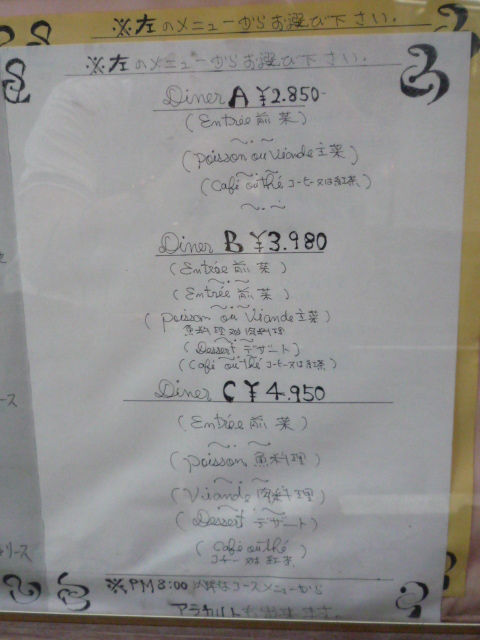 ※左のメニューからお選び下さい.
※左のメニューからお選び下さい.
Diner A ¥2.850-
(Entrée 前菜)
(Poisson ou Viande 主菜)
(Café ou thé コーヒー又は紅茶)
Diner B ¥3.980
(Entrée 前菜)
(Entrée 前菜)
(Poisson ou Viande 主菜)
魚料理又は肉料理
(Dessert デザート)
(Café ou thé コーヒー又は紅茶)
Diner C ¥4.950
(Entrée 前菜)
(Poisson 魚料理)
(Viande 肉料理)
(Dessert デザート)
(Café ou thé
コーヒー又は紅茶)
※PM8:00以降はコースメニューから
アラカルト
ース
ース